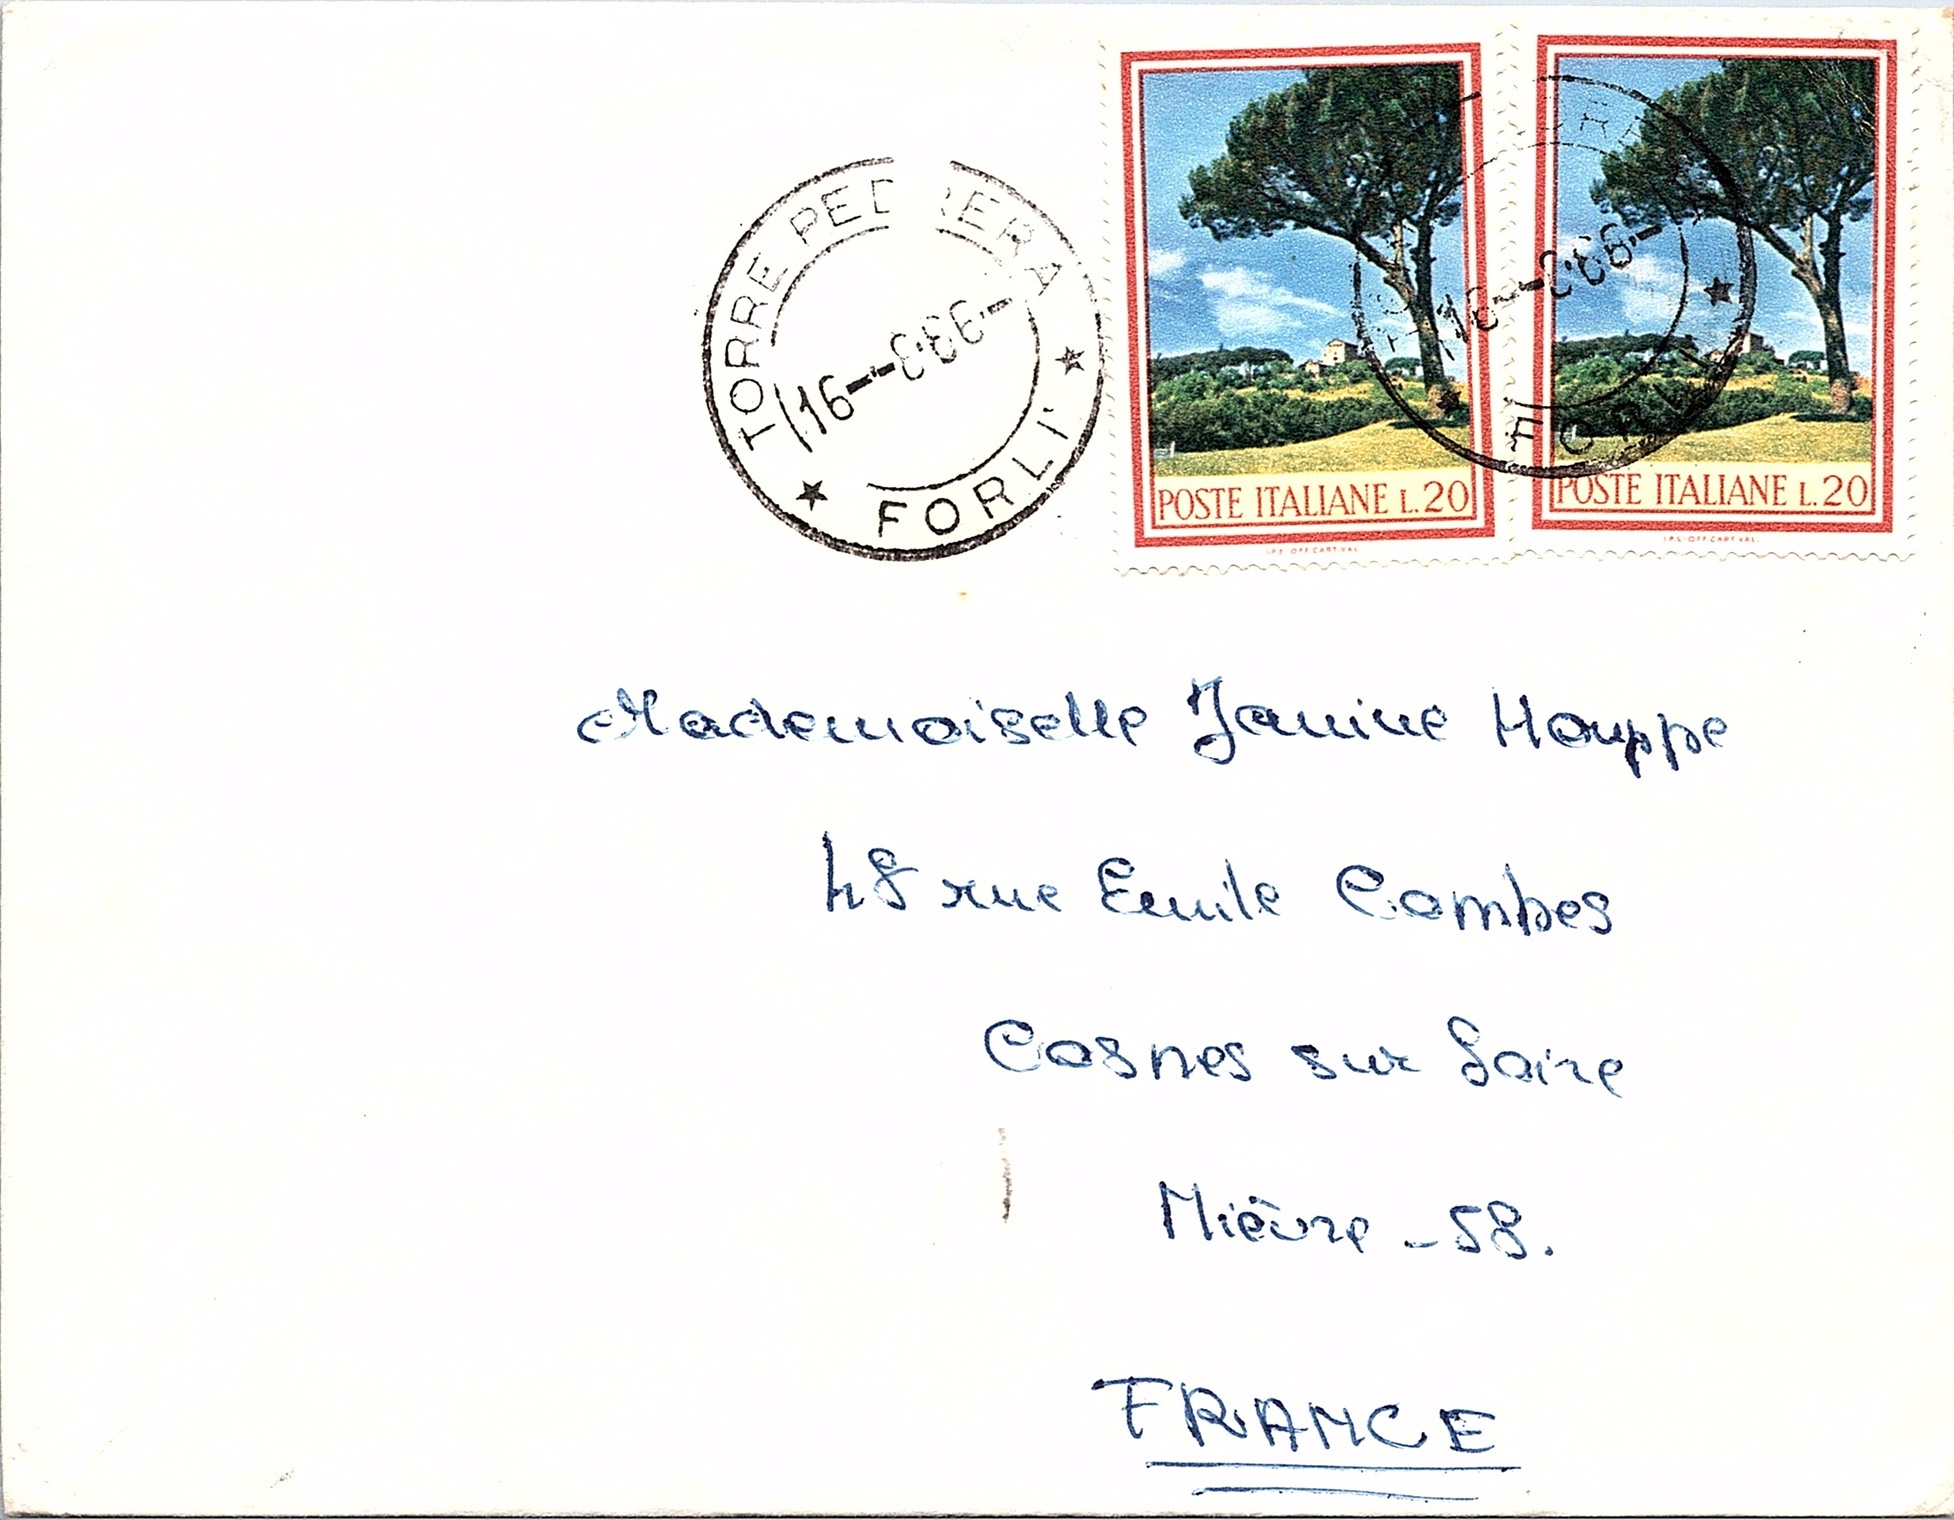 TORRE PEDRERA
16--8·66·-
FORLI'
POSTE ITALIANE L.20
I.P.S.-OFF.CART.VAL.
POSTE ITALIANE L.20
I.P.S.-OFF.CART.VAL.
FORLI'
Mademoiselle Janine Houppe
48 rue Emile Combes
Cosnes sur Loire
Nièvre - 58.
FRANCE